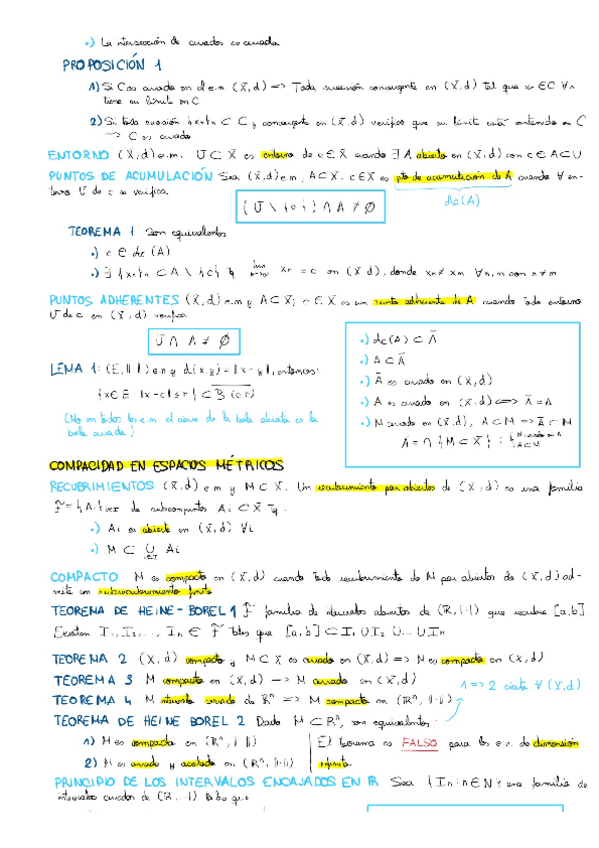 •) La intersección de cerrados es cerrada
PROPOSICIÓN 1
1) Si C es cerrado en el e.m. (X,d) => Toda sucesión convergente en (X,d) tal que xn ∈ C ∀n
tiene su límite en C
2) Si toda sucesión {xn}n ⊂ C y convergente en (X,d) verifica que su límite está contenido en C
=> C es cerrado
ENTORNO (X,d) e.m. U ⊂ X es entorno de c ∈ X cuando ∃ A abierto en (X,d) con c ∈ A ⊂ U
PUNTOS DE ACUMULACIÓN Sea (X,d) e.m., A ⊂ X. c ∈ X es pto de acumulación de A cuando ∀ en-
torno U de c se verifica
dc(A)
(U \ {c}) ∩ A ≠ ∅
TEOREMA 1 Son equivalentes
•) c ∈ dc(A)
•) ∃ {xn}n ⊂ A \ {c} tq lim xn = c en (X,d), donde xn ≠ xm ∀n,m con n ≠ m
PUNTOS ADHERENTES (X,d) e.m y A ⊂ X; c ∈ X es un punto adherente de A cuando todo entorno
U de c en (X,d) verifica
U ∩ A ≠ ∅
LEMA 1: (E,‖ ‖) e.n y d(x,y) = ‖x - y‖, entonces:
{x ∈ E ‖x - c‖ ≤ r} ⊂ B(c,r)
(No en todos los e.m. el cierre de la bola abierta es la
bola cerrada)
•) dc(A) ⊂ Ā
•) A ⊂ Ā
•) Ā es cerrado en (X,d)
•) A es cerrado en (X,d) <=> Ā = A
•) M cerrado en (X,d), A ⊂ M => Ā ⊂ M
Ā = ∩ {M ⊂ X} : {M cerrado en A ⊂ M
COMPACIDAD EN ESPACIOS MÉTRICOS
RECUBRIMIENTOS (X,d) e.m y M ⊂ X. Un recubrimiento por abiertos de (X,d) es una familia
F = {Ai}i∈I de subconjuntos Ai ⊂ X Tq:
•) Ai es abierto en (X,d) ∀i
•) M ⊂ ∪ Ai
COMPACTO M es compacto en (X,d) cuando todo recubrimiento de M por abiertos de (X,d) ad-
mite un subrecubrimiento finito
TEOREMA DE HEINE-BOREL 1 F familia de intervalos abiertos de (R,|·|) que recubre [a,b]
Existen I1, I2, ..., In ∈ F tales que [a,b] ⊂ I1 ∪ I2 ∪ ... ∪ In
TEOREMA 2 (X,d) compacto y M ⊂ X es cerrado en (X,d) => M es compacto en (X,d)
TEOREMA 3 M compacto en (X,d) => M cerrado en (X,d)
1 => 2 cierta ∀ (X,d)
TEOREMA 4 M intervalo cerrado de Rⁿ => M compacto en (Rⁿ,‖·‖)
TEOREMA DE HEINE BOREL 2 Dado M ⊂ Rⁿ, son equivalentes:
1) M es compacto en (Rⁿ,‖ ‖)
2) M es cerrado y acotado en (Rⁿ,‖·‖)
El teorema es FALSO para los e.n. de dimensión
infinita
PRINCIPIO DE LOS INTERVALOS ENCAJADOS EN R Sea {In : n ∈ N} una familia de
intervalos cerrados de (R,|·|) tales que